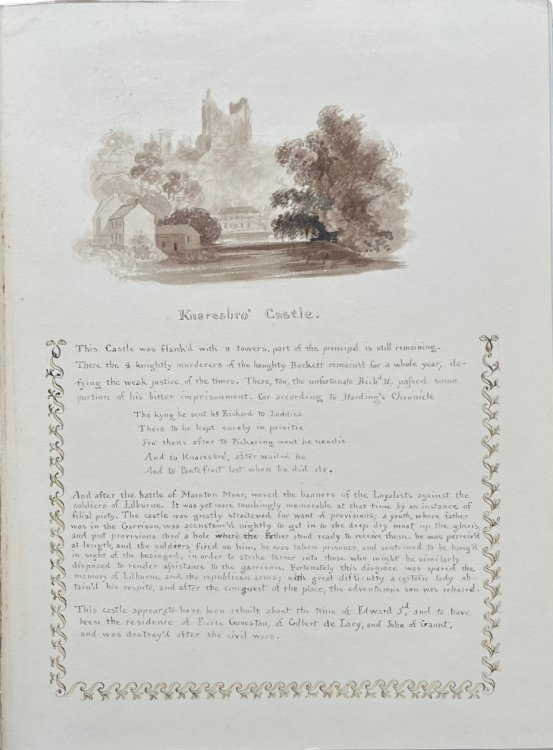 Knaresbro' Castle.
This Castle was flank'd with 11 towers, part of the principal is still remaining.
There the 4 knightly murderers of the haughty Beckett remain'd for a whole year, de-
fying the weak justice of the times. There, too, the unfortunate Rich.d II. passed some
portion of his bitter imprisonment. for according to Harding's Chronicle
The kyng he sent Richard to Laddies
There to be kept surely in privitie
Fro' thens after to Pickering went he
And to Knaresbro', after he
And to Pontefract last when he did die.
And after the battle of Marston Moor, waved the banners of the Loyalists against the
soldiers of Lilburne. It was yet more touchingly memorable at that time by an instance of
filial piety. The castle was greatly straitened for want of provisions; a youth, whose father
was in the Garrison, was accustom'd nightly to get in to the deep dry moat up the glacis,
and put provisions thro' a hole where the father stood ready to receive them. he was perceiv'd
at length, and the soldiers fired at him, he was taken prisoner, and sentenced to be hang'd
in sight of the besieged, in order to strike terror into those who might be similarly
disposed to render assistance to the garrison. Fortunately this disgrace was spared the
memory of Lilburne and the republican arms; with great difficulty a certain lady ob-
tain'd his respite, and after the conquest of the place, the adventurous son was released.
This castle appears to have been rebuilt about the time of Edward 3rd and to have
been the residence of Pierce Gaveston, of Gilbert de Lacy, and John of Gaunt,
and was destroy'd after the civil wars.